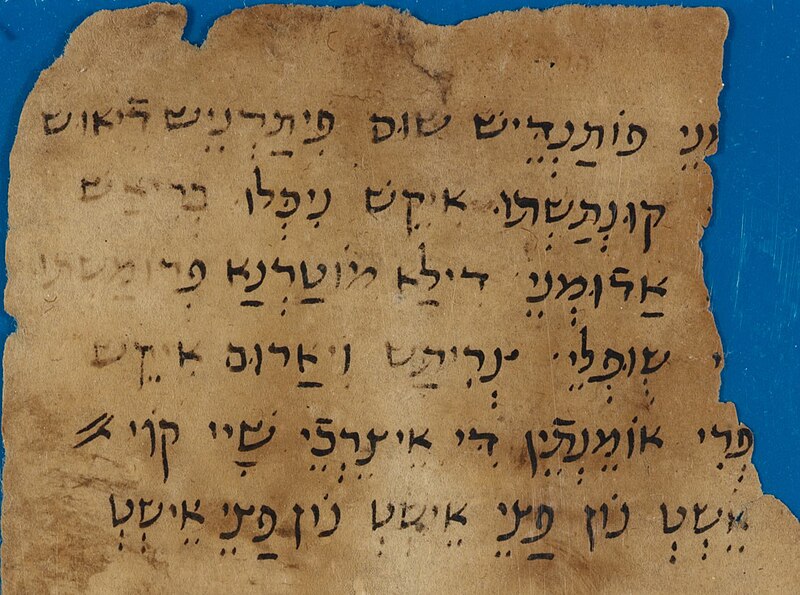 מֵנֵי פוֹתַנְדֵיש שוּם פִיתַרְנֵיש דֵיאוּש
קוּנְתַשְתוּ אִיקֵש נִיכְּלוּ בְּרִיאַש
אַדוּמְנֵי דִילַא מוֹטַרְנַא פְרוּמַשְתוּ
שוּפְלֵי נְרִיתַש וִיאַרוּם אִיקֵש
פְרִי אוֹמֵנְתֵין דִי אֵיצֵרְבֵי שַיי קוֹי
אֵשְטְ נוֹן פַצֵי אֵישְטְ נוֹן פַצֵי אֵישְטְ